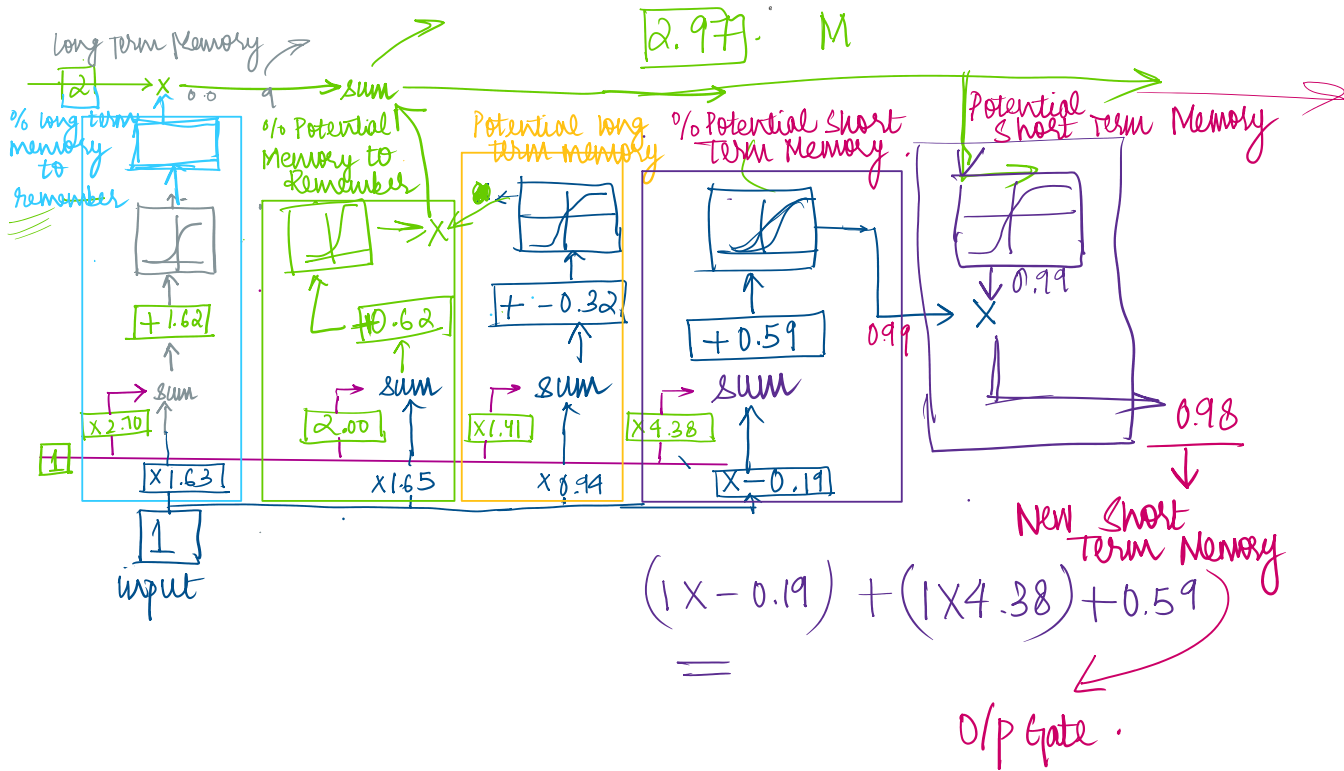 2.97. M
Long Term Memory
2
X
0.0
9
sum
% long term
memory
to
remember
% Potential
Memory to
Remember
Potential long
term memory
% Potential Short
Term Memory.
Potential
Short Term Memory
X
+1.62
+0.62
+-0.32
+0.59
0.99
0.99
X
sum
sum
sum
sum
X2.70
2.00
X1.41
X4.38
0.98
1
X1.63
X1.65
X0.94
X-0.19
1
input
New Short
Term Memory
(1X-0.19) + (1X4.38)+0.59
=
O/P Gate.